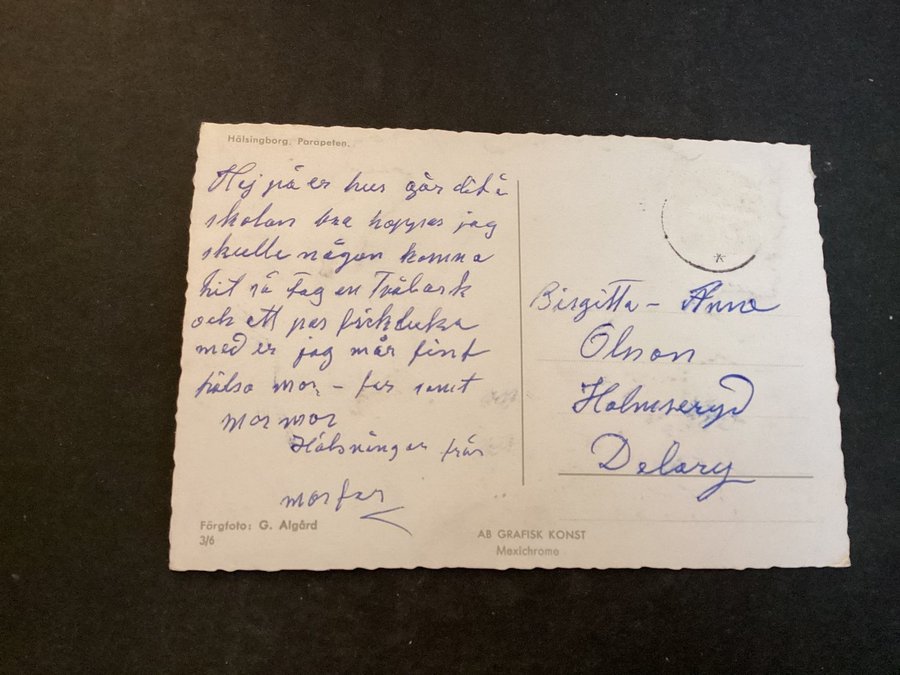 Hälsingborg. Parapeten.
Hej på er hur går det i
skolan bra hoppas jag
skulle någon komma
hit så tag en Tvåbark
och ett par fickduka
med er jag mår fint
hälsa mor - far samt
mormor
Hälsningar från
morfar
Birgitta - Anna
Olsson
Holmseryd
Delary
Färgfoto: G. Algård
3/6
AB GRAFISK KONST
Mexichrome